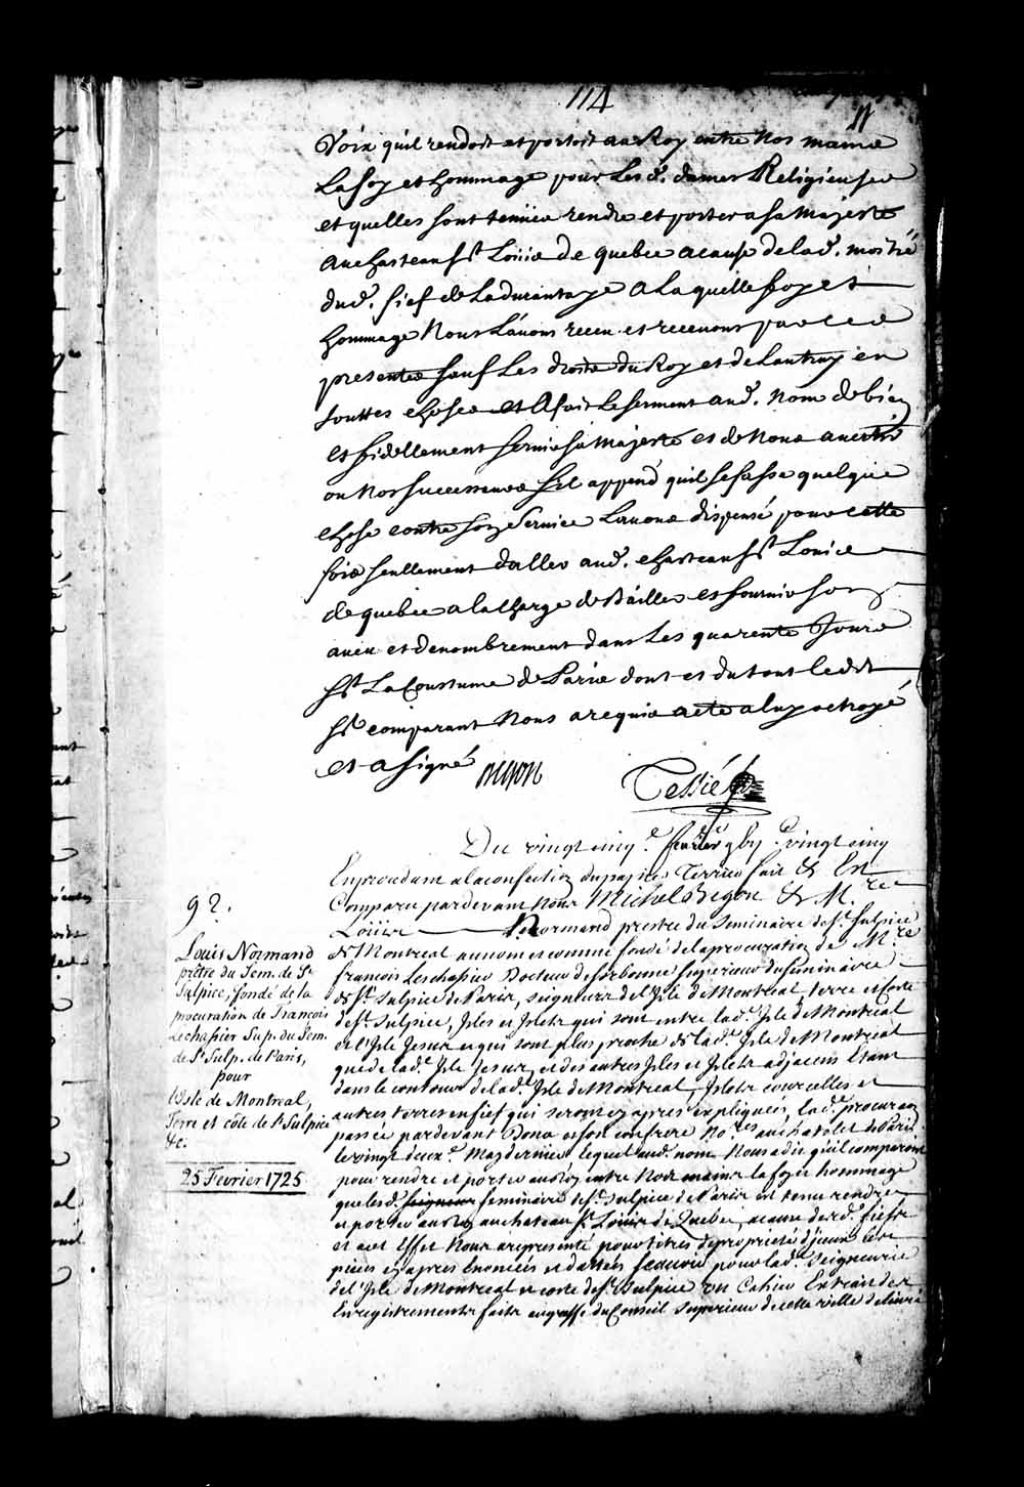 114
Voix qu'il rendoit et portoit au Roy entre Nos mains
La foy et hommage pour Les d. dames Religieuses
et quelles sont tenües rendre et porter a sa Majesté
au chasteau St Loüis de quebec a cause de lad. moitié
dud. fief de Ladurantaye a Laquelle foy et
hommage Nous L'auons receu et receuons par ces
presentes sauf Les droits du Roy et de Lautruy en
touttes choses et A fait le serment aud. nom de bien
et fidellement seruir sa Majesté et de Nous auertir
ou Nos successeurs sil apprend quil se fasse quelque
chose contre son Seruice Lauons dispensé pour cette
fois seullement daller aud. chasteau St Louis
de quebec a la charge de Bailler et fournir son
aueu et denombrement dans Les quarente Jours
St La Coustume de Paris dont et du tout ledit
Sr comparant Nous a requis acte a luy octroyé
et a signé Begon
Tessié
Du vingt cinq.e feurier gby.c vingt cinq
En procedant a la confection du papier Terrier fait &c Est
Comparu pardevant Nous Michel Begon &c M.re
Loüis Normand prestre du Seminaire de St Sulpice
de Montreal au nom et comme fondé de la procuration de M.re
françois Leschassier Docteur de sorbonne superieur du seminaire
de St. Sulpice de Paris, seigneurs de l'Isle de Montreal, terre et Coste
de St. Sulpice, Isles et Islets qui sont entre lad. Isle de Montreal
et l'Isle Jesus et qui sont plus proche de lad. Isle de Montreal
que de lad. Isle Jesus, et des autres Isles et Islets adjacens Etant
dans le contour de lad. Isle de Montreal, Islets courcelles et
autres terres en fief qui seront cy apres expliquées, lad. procuraon
passée pardevant Dona et son confrere No.res au chatelet de Paris
le vingt deux.e May dernier lequel aud. nom Nous a dit qu'il comparoit
pour rendre et porter au Roy entre Nos mains la foy et hommage
que led. seigneur seminaire de St. Sulpice de Paris est tenu rendre
et porter au Roy au chateau St. Louis de Quebec, a cause desd. fiefs
et a cet Effet Nous a representé pour titres de proprieté d'iceux les
pieces cy apres Enoncées et dattées scavoir pour lad. Seigneurie
de l'Isle de Montreal et coste de St. Sulpice un Cahier Extrait des
Enregistrements faits au greffe du Conseil Superieur de cette ville delivré
92.
Louis Normand
prêtre du Sém. de St
Sulpice, fondé de la
procuration de François
Lechassier Sup. du Sem.
de St Sulp. de Paris,
pour
l'Isle de Montreal,
Terre et côte de St Sulpice
&c.
25 Fevrier 1725